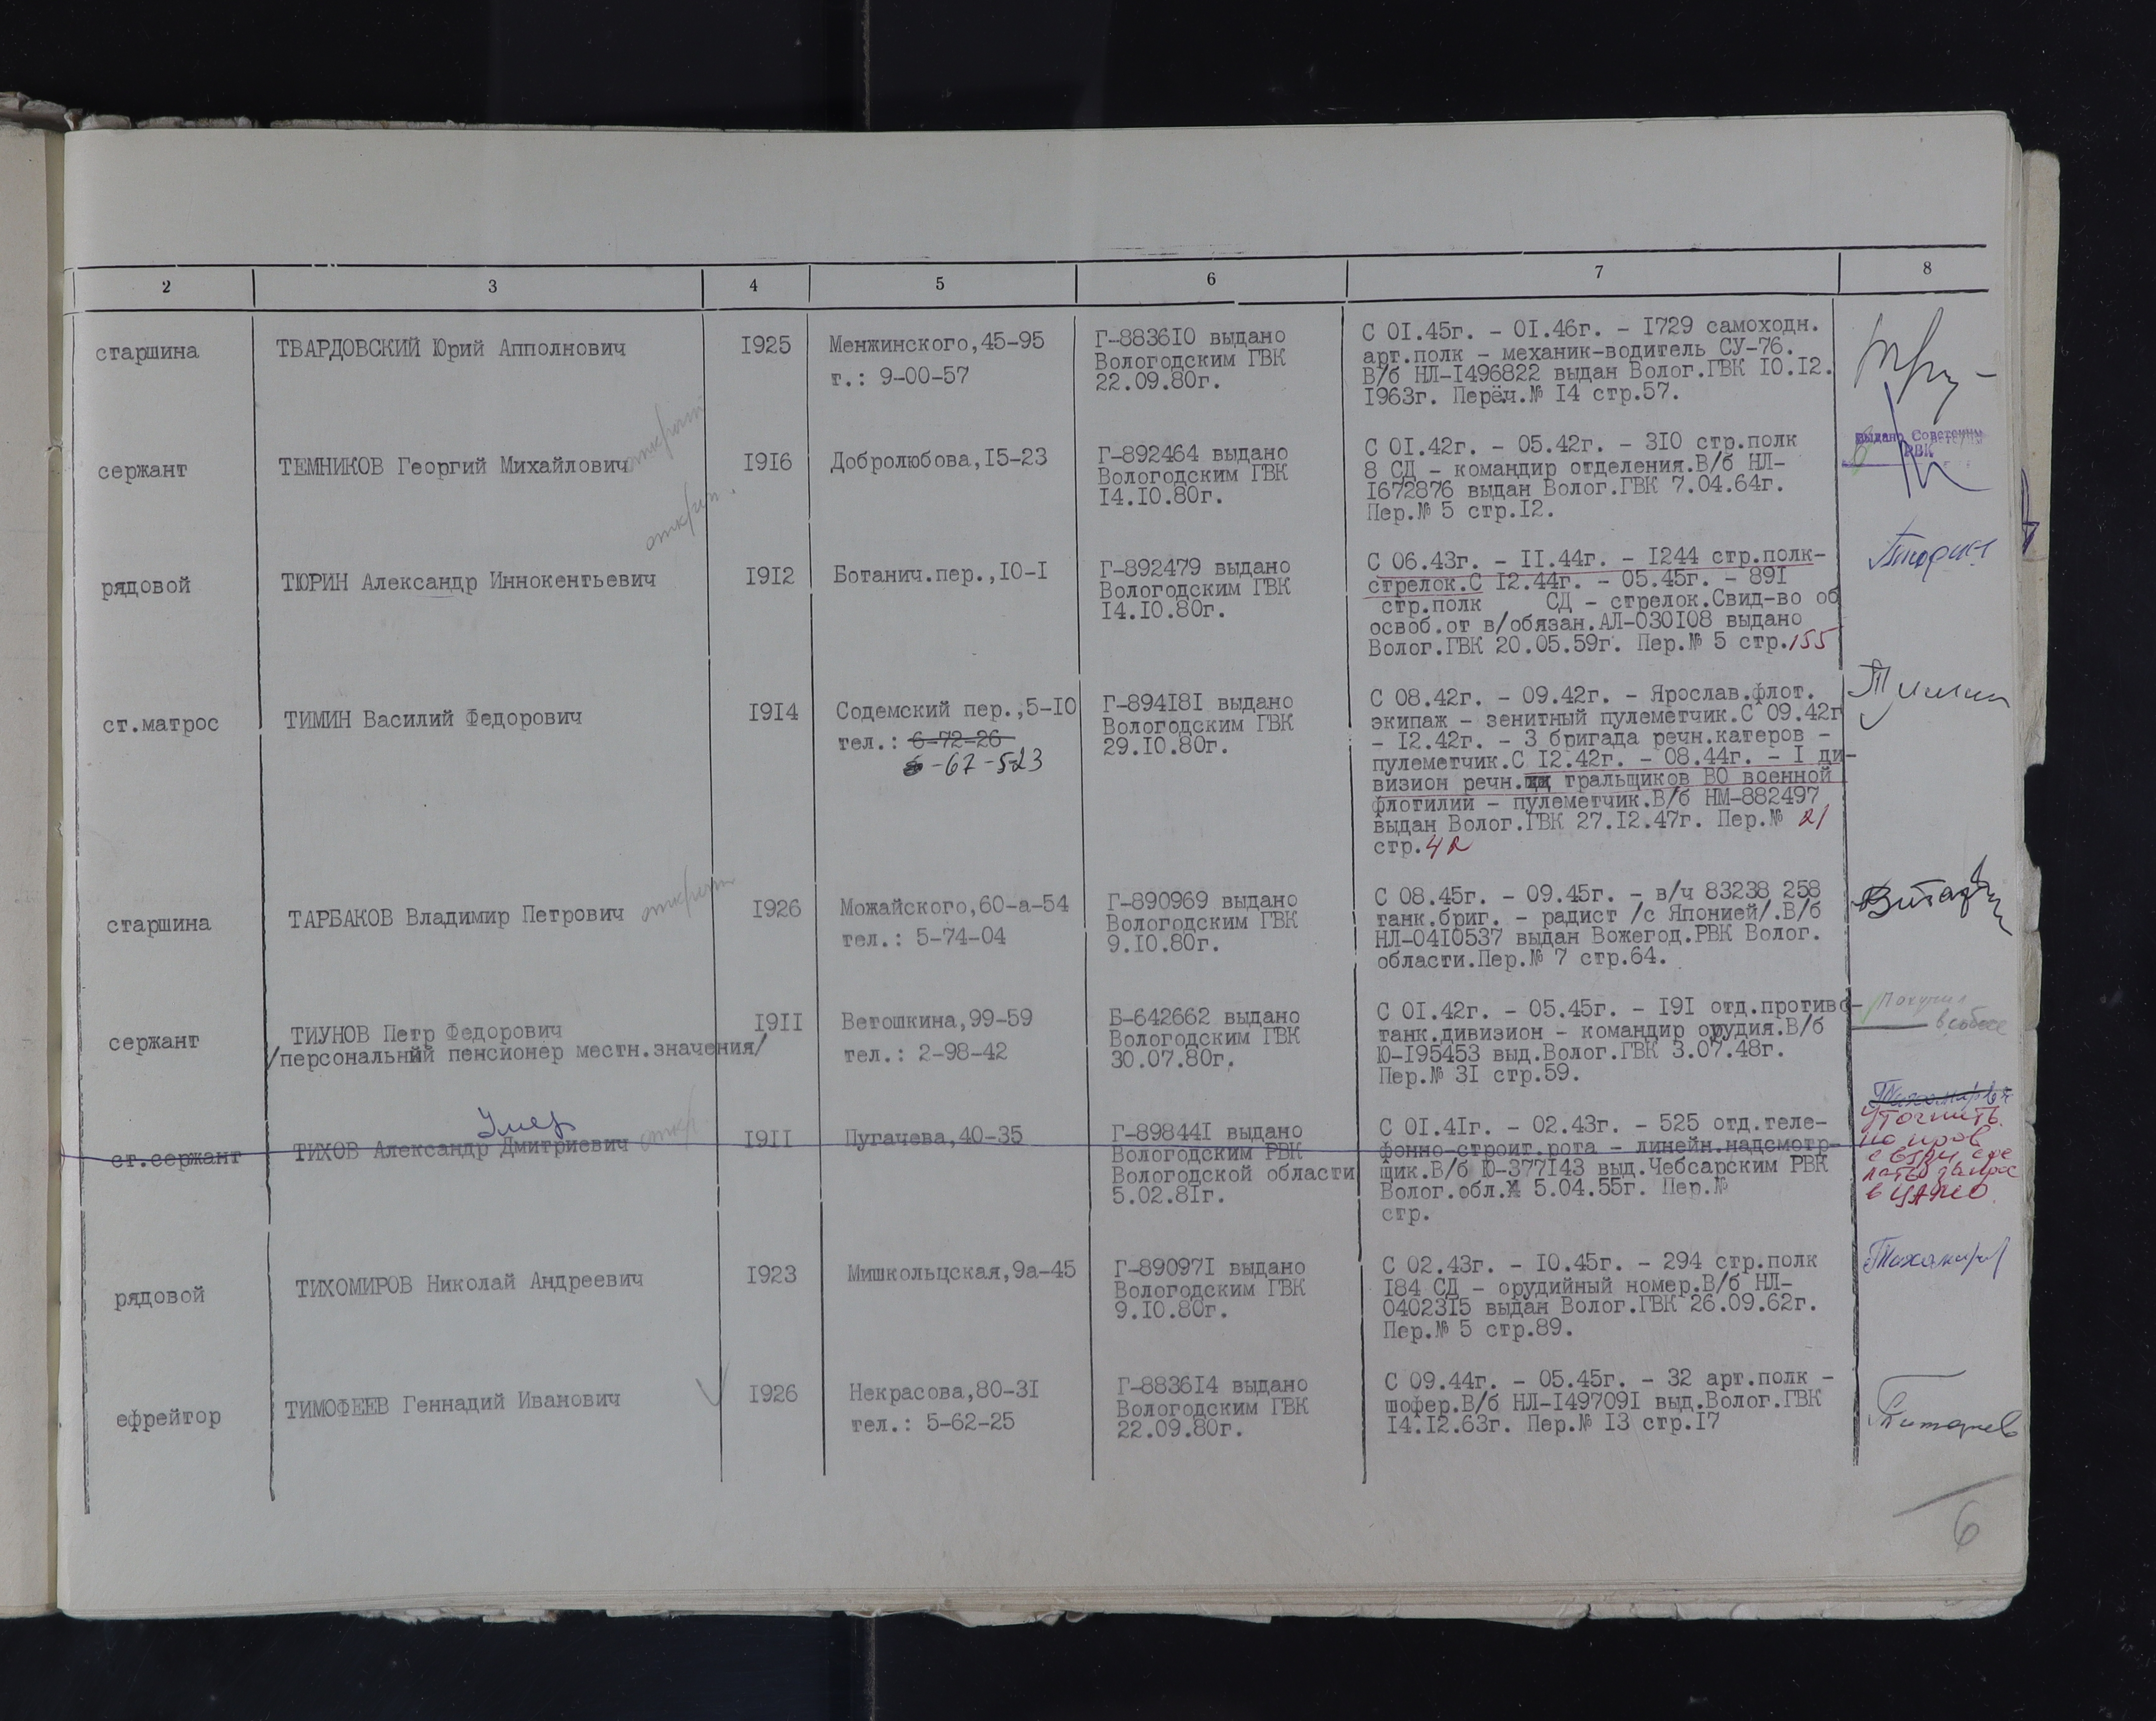 2 3 4 5 6 7 8
старшина
ТВАРДОВСКИЙ Юрий Апполнович
I925
Менжинского,45-95
т.: 9-00-57
Г-8836I0 выдано
Вологодским ГВК
22.09.80г.
С 0I.45г. - 0I.46г. - I729 самоходн.
арт.полк - механик-водитель СУ-76.
В/б НЛ-I496822 выдан Волог.ГВК I0.I2.
I963г. Переч.№ I4 стр.57.
сержант
ТЕМНИКОВ Георгий Михайлович
открыт
I9I6
Добролюбова,I5-23
Г-892464 выдано
Вологодским ГВК
I4.I0.80г.
С 0I.42г. - 05.42г. - 3I0 стр.полк
8 СД - командир отделения.В/б НЛ-
I672876 выдан Волог.ГВК 7.04.64г.
Пер.№ 5 стр.I2.
выдано Советским
РВК
рядовой
ТЮРИН Александр Иннокентьевич
открыт.
I9I2
Ботанич.пер.,I0-I
Г-892479 выдано
Вологодским ГВК
I4.I0.80г.
С 06.43г. - II.44г. - I244 стр.полк-
стрелок.С I2.44г. - 05.45г. - 89I
стр.полк СД - стрелок.Свид-во об
освоб.от в/обязан.АЛ-030I08 выдано
Волог.ГВК 20.05.59г. Пер.№ 5 стр.155
ст.матрос
ТИМИН Василий Федорович
I9I4
Содемский пер.,5-I0
тел.: 6-72-26
Г-894I8I выдано
Вологодским ГВК
29.I0.80г.
С 08.42г. - 09.42г. - Ярослав.флот.
экипаж - зенитный пулеметчик.С 09.42г
- I2.42г. - 3 бригада речн.катеров -
пулеметчик.С I2.42г. - 08.44г. - I ди-
визион речн. тральщиков ВО военной
флотилии - пулеметчик.В/б НМ-882497
выдан Волог.ГВК 27.I2.47г. Пер.№ 21
стр.42
старшина
ТАРБАКОВ Владимир Петрович
открыт
I926
Можайского,60-а-54
тел.: 5-74-04
Г-890969 выдано
Вологодским ГВК
9.I0.80г.
С 08.45г. - 09.45г. - в/ч 83238 258
танк.бриг. - радист /с Японией/.В/б
НЛ-04I0537 выдан Вожегод.РВК Волог.
области.Пер.№ 7 стр.64.
сержант
ТИУНОВ Петр Федорович
/персональный пенсионер местн.значения/
I9II
Ветошкина,99-59
тел.: 2-98-42
Б-642662 выдано
Вологодским ГВК
30.07.80г.
С 0I.42г. - 05.45г. - I9I отд.противо-
танк.дивизион - командир орудия.В/б
Ю-I95453 выд.Волог.ГВК 3.07.48г.
Пер.№ 3I стр.59.
Получил
в собесе
Умер
ст.сержант
ТИХОВ Александр Дмитриевич
откр
I9II
Пугачева,40-35
Г-89844I выдано
Вологодским РВК
Вологодской области
5.02.8Iг.
С 0I.4Iг. - 02.43г. - 525 отд.теле-
фонно-строит.рота - линейн.надсмотр-
щик.В/б Ю-377I43 выд.Чебсарским РВК
Волог.обл. 5.04.55г. Пер.№
стр.
Уточнить
в ЦАМО.
рядовой
ТИХОМИРОВ Николай Андреевич
I923
Мишкольцская,9а-45
Г-89097I выдано
Вологодским ГВК
9.I0.80г.
С 02.43г. - I0.45г. - 294 стр.полк
I84 СД - орудийный номер.В/б НЛ-
04023I5 выдан Волог.ГВК 26.09.62г.
Пер.№ 5 стр.89.
ефрейтор
ТИМОФЕЕВ Геннадий Иванович
I926
Некрасова,80-3I
тел.: 5-62-25
Г-8836I4 выдано
Вологодским ГВК
22.09.80г.
С 09.44г. - 05.45г. - 32 арт.полк -
шофер.В/б НЛ-I49709I выд.Волог.ГВК
I4.I2.63г. Пер.№ I3 стр.I7
6